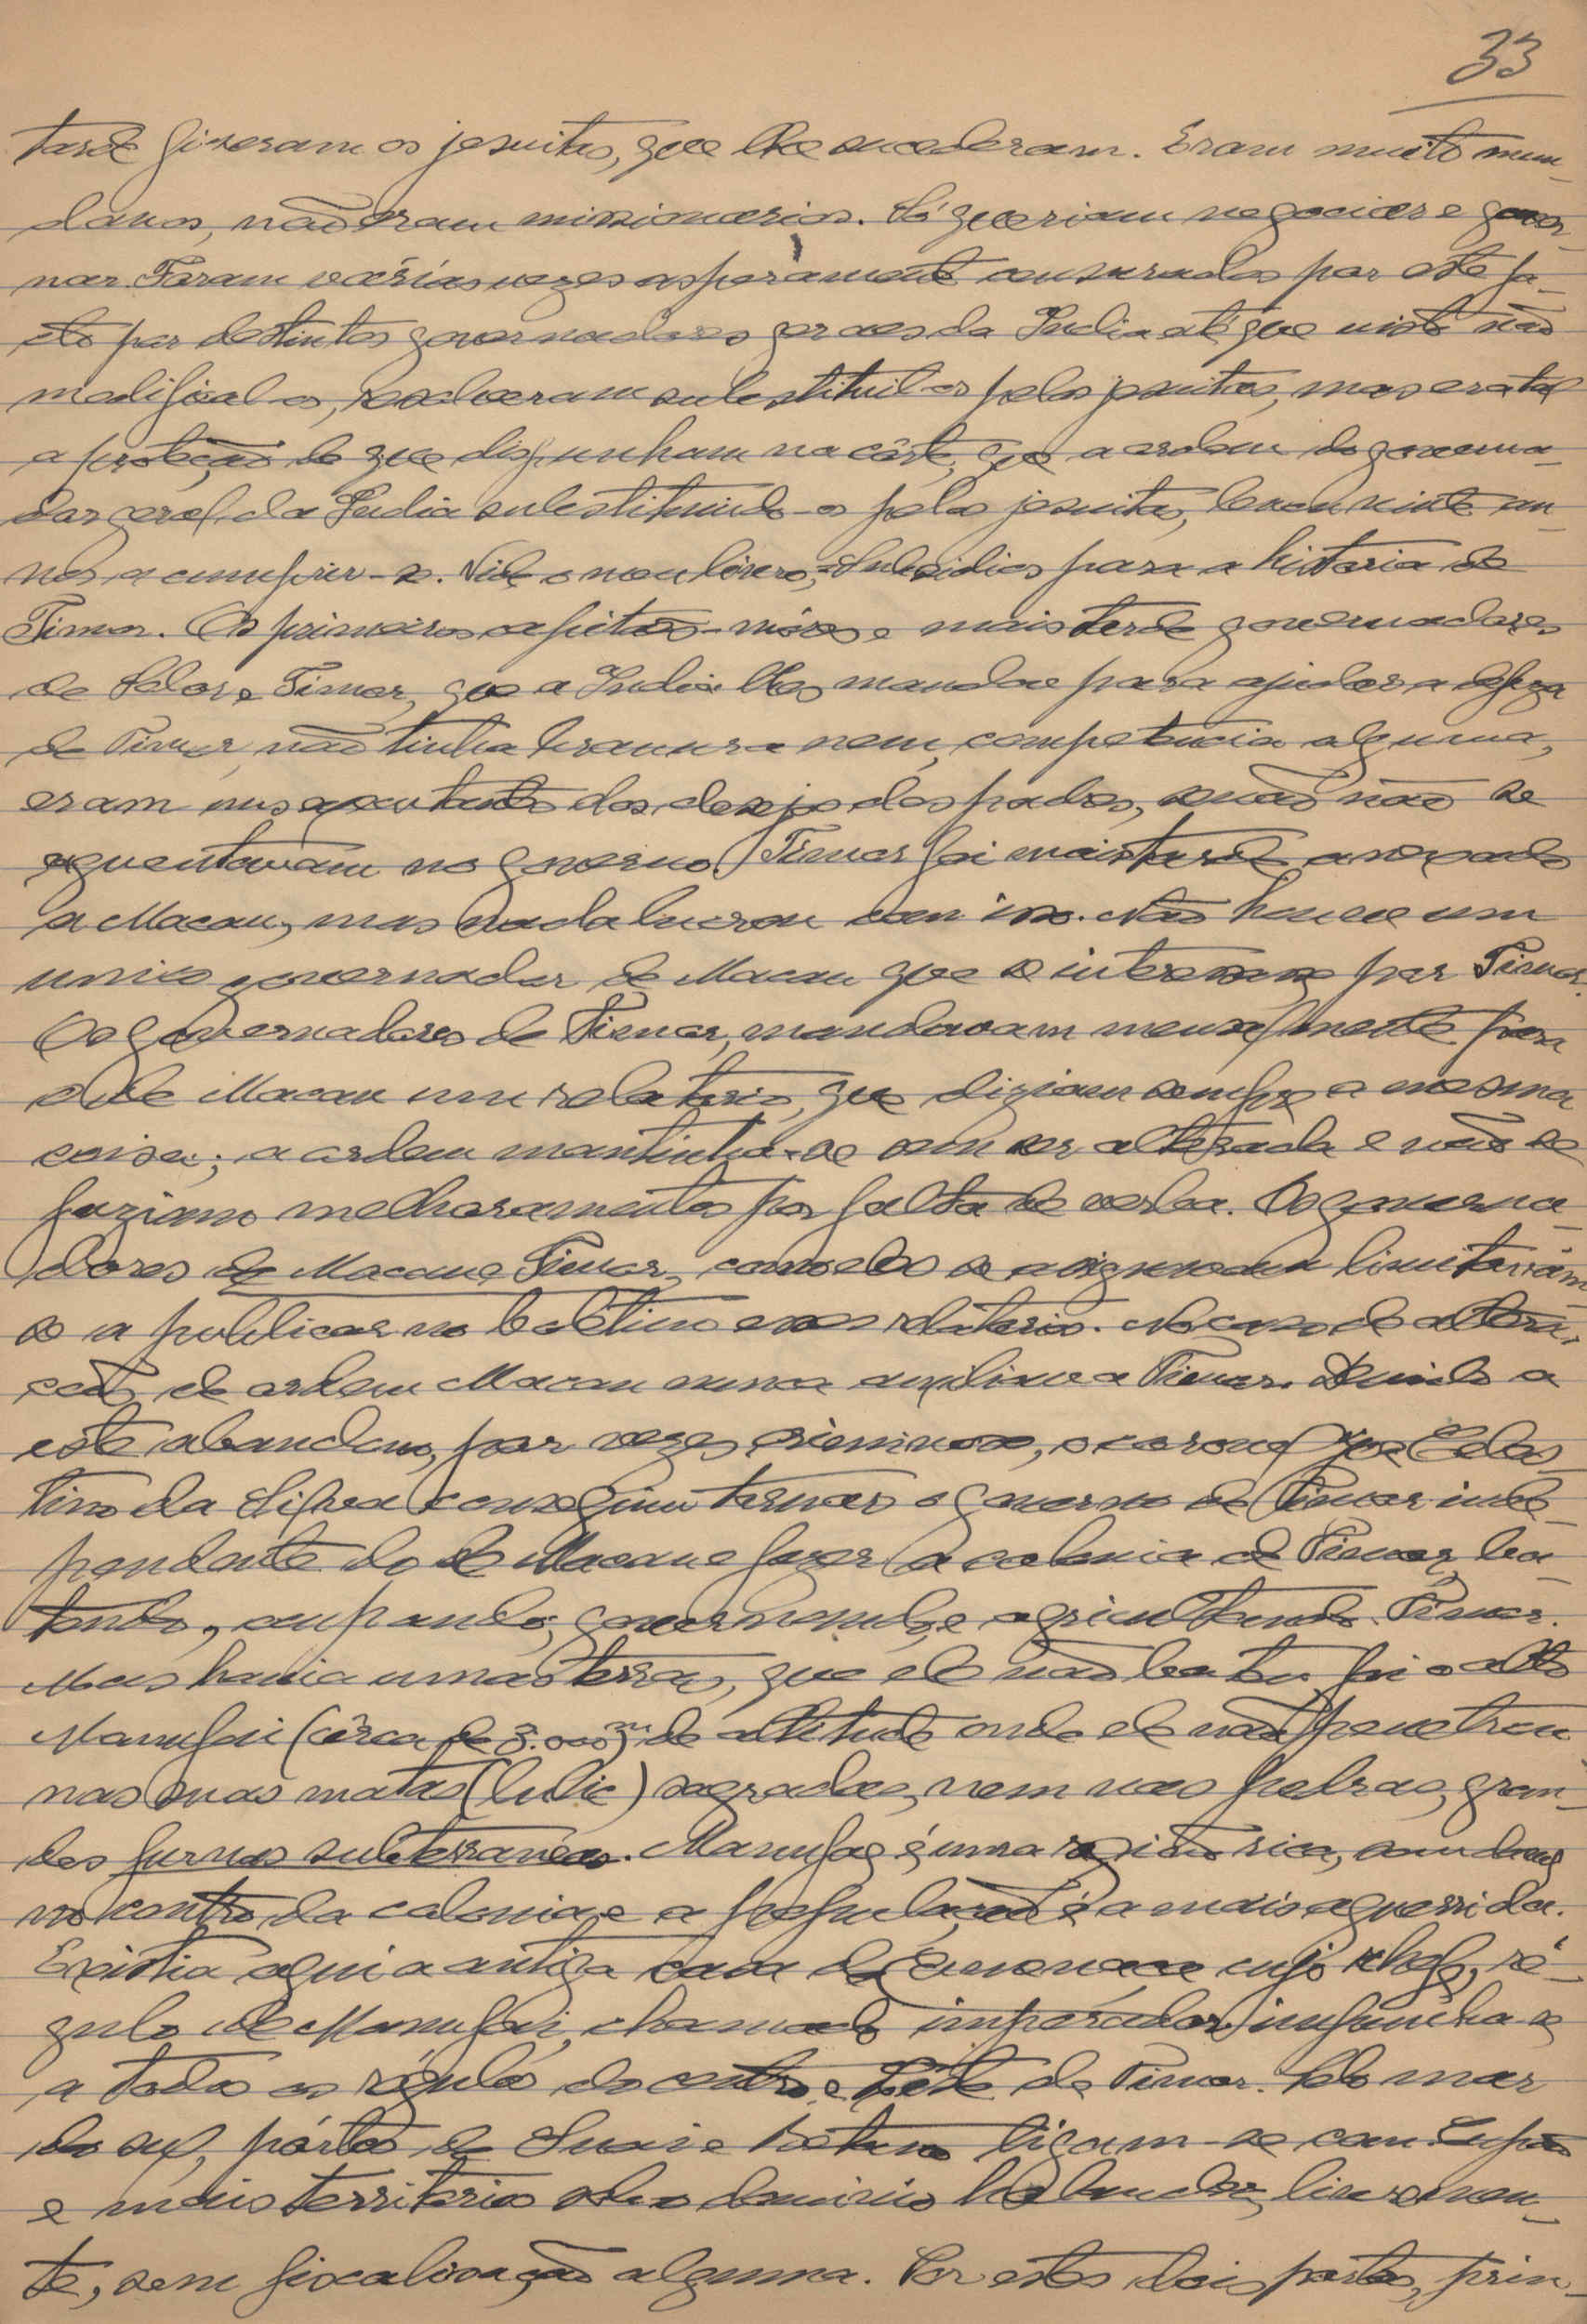 33
tarde fizeram os jesuitas, que lhe sucederam. Eram muito mun-
danos, não eram missionarios. Só queriam negociar e gover-
nar. Foram várias vezes asperamente censurados por este fa-
cto por distintos governadores geraes da India até que visto não
modifical-os, resolveram substituil-os pelos jesuitas, mas era tal
a proteção de que dispunham na côrte, que a ordem do governa-
dor geral da India substituindo-os pelos jesuitas, levou vinte an-
nos a cumprir-se. Vide o meu livro, "Subsidios para a historia de
Timor. Os primeiros capitães-móres e mais tarde governadores
de Solor e Timor, que a India lhes mandou para ajudar a defeza
de Timor, não tinha bravura nem competencia alguma,
eram uns executantes dos desejos dos padres, senão não se
aguentavam no governo. Timor foi mais tarde anexado
a Macau, mas nada lucrou com isso. Não houve um
unico governador de Macau que se interessasse por Timor.
Os governadores de Timor, mandavam mensalmente para
o de Macau um relatorio, que diziam sempre a mesma
coisa; a ordem mantinha-se sem ser alterada e não se
faziam melhoramentos por falta de verba. Os governa-
dores de Macau e Timor, como elles se limitavam
se a publicar no boletim esses relatorios. No caso de altera-
ção de ordem Macau nunca auxiliou a Timor. Devido a
este abandono, por vezes criminoso, o coronel José Celes-
tino da Silva conseguiu tornar o governo de Timor inde-
pendente do de Macau e fazer a colonia de Timor, ba-
tendo, ocupando, governando, e agricultando Timor.
Mas havia umas terras, que ele não bateu foi o alto
Manufai (cêrca de 3.000m de altitude onde ele não penetrou
nas suas matas (lulic) sagradas, nem nas pedras, gran-
des furnas subterraneas. Manufae é uma região rica,
no centro da colonia e a população é a mais aguerrida.
Existia aqui a antiga casa de cujo chefe, ré-
gulo de Manufai, chamado imperador impunha-se
a todos os régulos do centro e Léste de Timor. Pelo mar
do sul, pórtos de Suai e Bétano ligam-se com Cupão
e mais territorios sob o dominio holandez, livremen-
te, sem fiscalisação alguma. Por estes dois portos, prin-